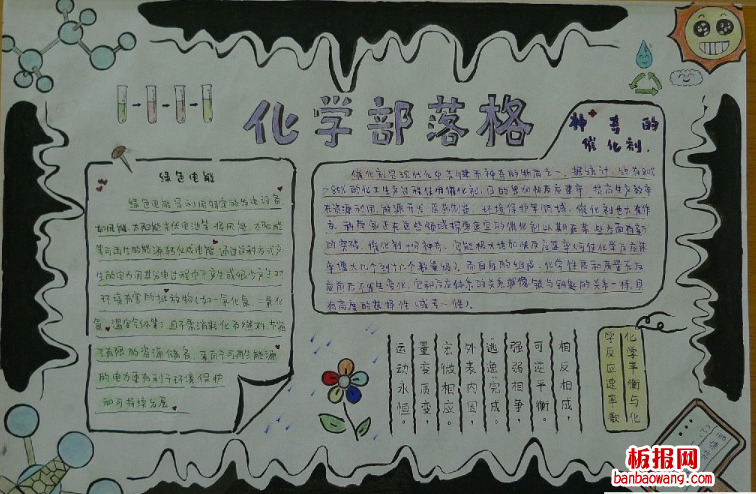 化学部落格
神奇的
催化剂
绿色电能
绿色电能是利用特定的发电设备
如风能、太阳能光伏电池等,将风能、太阳能
等可再生的能源转化成电能,通过这种方式产
生的电力因其发电过程中不产生或很少产生对
环境有害的排放物(如一氧化氮、二氧化
有限的资源储备,
的电力更有利于环境保护
和可持续发展。
催化剂是现代化学中关键而神奇的物质之一。据统计,约有80%
~85%的化工生产过程使用催化剂,目的是加快反应速率,提高生产效率
在资源利用、能源开发、医药制造、环境保护等领域,催化剂也大有作
为,科学家正在这些领域探索适宜的催化剂以期在某些方面有新
的突破。催化剂十分神奇,它能极大地加快反应速率(可使化学反应速
率增大几个到十几个数量级),而自身的组成、化学性质和质量在反
应前后不发生变化,它和反应体系的关系就像锁与钥匙的关系一样,具
有高度的选择性(或专一性)。
化学平衡与化
学反应速率数
相反相成,
可逆平衡。
强弱相争,
逃逸完成。
外表内因,
玄微相应。
量变质变,
运动永恒。
板报网
banbaowang.com